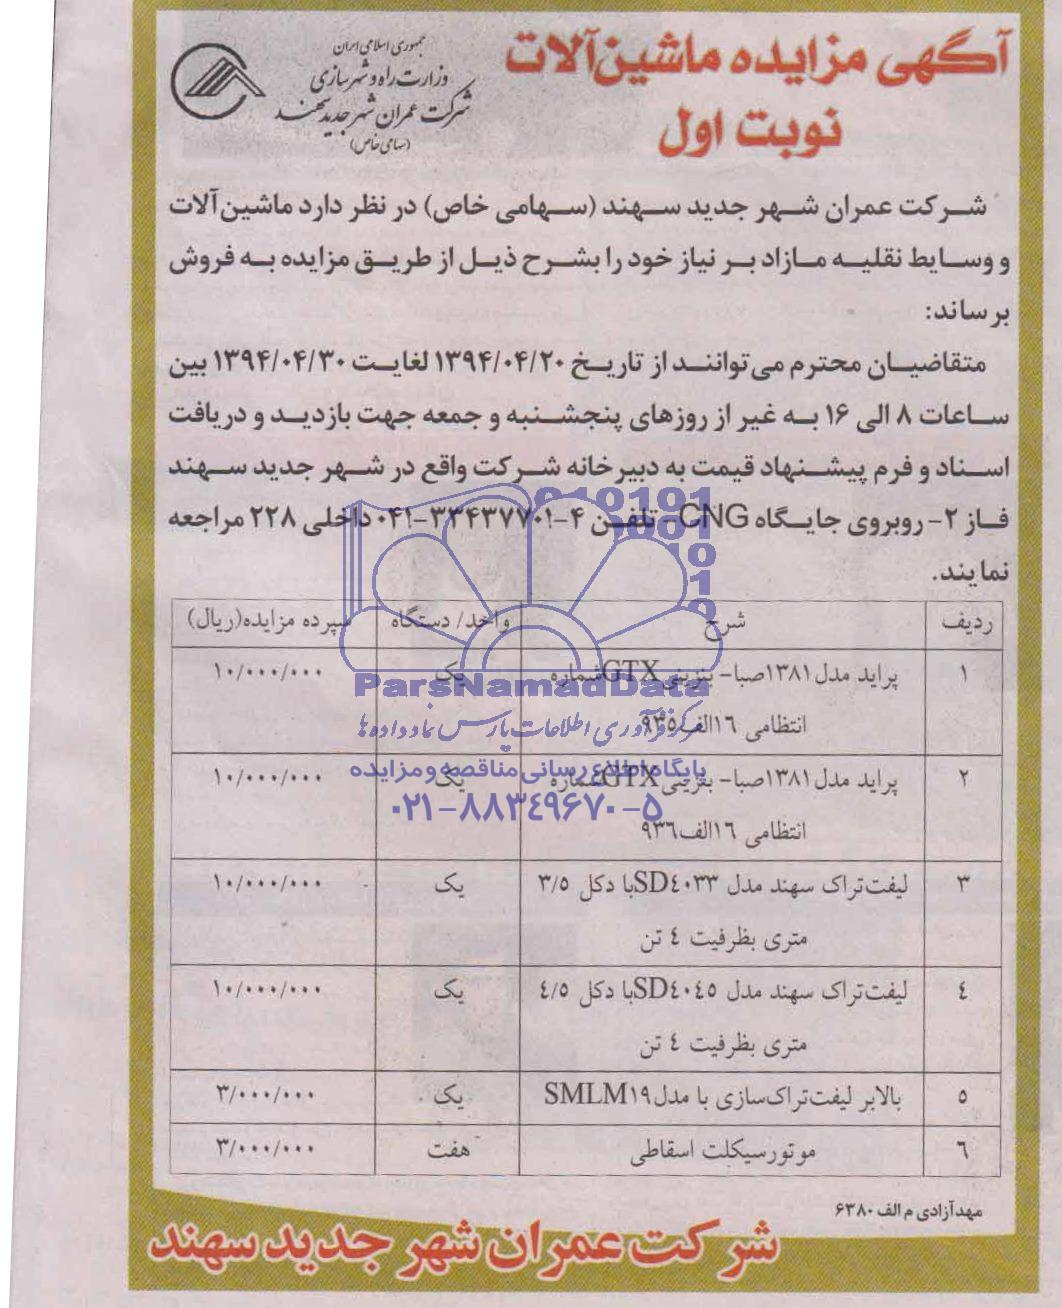 آگهی مزایده ماشین‌آلات
نوبت اول
جمهوری اسلامی ایران
وزارت راه و شهرسازی
شرکت عمران شهر جدید سهند
(سهامی خاص)
شرکت عمران شهر جدید سهند (سهامی خاص) در نظر دارد ماشین‌آلات
و وسایط نقلیه مازاد بر نیاز خود را بشرح ذیل از طریق مزایده به فروش
برساند:
متقاضیان محترم می‌توانند از تاریخ ۱۳۹۴/۰۴/۲۰ لغایت ۱۳۹۴/۰۴/۳۰ بین
ساعات ۸ الی ۱۶ به غیر از روزهای پنجشنبه و جمعه جهت بازدید و دریافت
اسناد و فرم پیشنهاد قیمت به دبیرخانه شرکت واقع در شهر جدید سهند
فاز ۲- روبروی جایگاه CNG- تلفن ۴-۳۳۴۳۷۷۰۱-۰۴۱ داخلی ۲۲۸ مراجعه
نمایند.
ردیف شرح واحد/ دستگاه سپرده مزایده(ریال)
۱ پراید مدل ۱۳۸۱صبا- بنزینی GTXشماره یک ۱۰/۰۰۰/۰۰۰
انتظامی ۱۶الف۹۳۵
۲ پراید مدل ۱۳۸۱صبا- بنزینی GTXشماره یک ۱۰/۰۰۰/۰۰۰
انتظامی ۱۶الف۹۳۶
۳ لیفت‌تراک سهند مدل SD۴۰۳۳با دکل ۳/۵ یک ۱۰/۰۰۰/۰۰۰
متری بظرفیت ٤ تن
٤ لیفت‌تراک سهند مدل SD٤۰٤۵با دکل ٤/۵ یک ۱۰/۰۰۰/۰۰۰
متری بظرفیت ٤ تن
۵ بالابر لیفت‌تراک‌سازی با مدل SMLM۱۹ یک ۳/۰۰۰/۰۰۰
٦ موتورسیکلت اسقاطی هفت ۳/۰۰۰/۰۰۰
ParsNamadData
مرکز فرآوری اطلاعات پارس نماد داده‌ها
پایگاه اطلاع رسانی مناقصه و مزایده
۰۲۱-۸۸۳۴۹۶۷۰-۵
مهدآزادی م الف ۶۳۸۰
شرکت عمران شهر جدید سهند